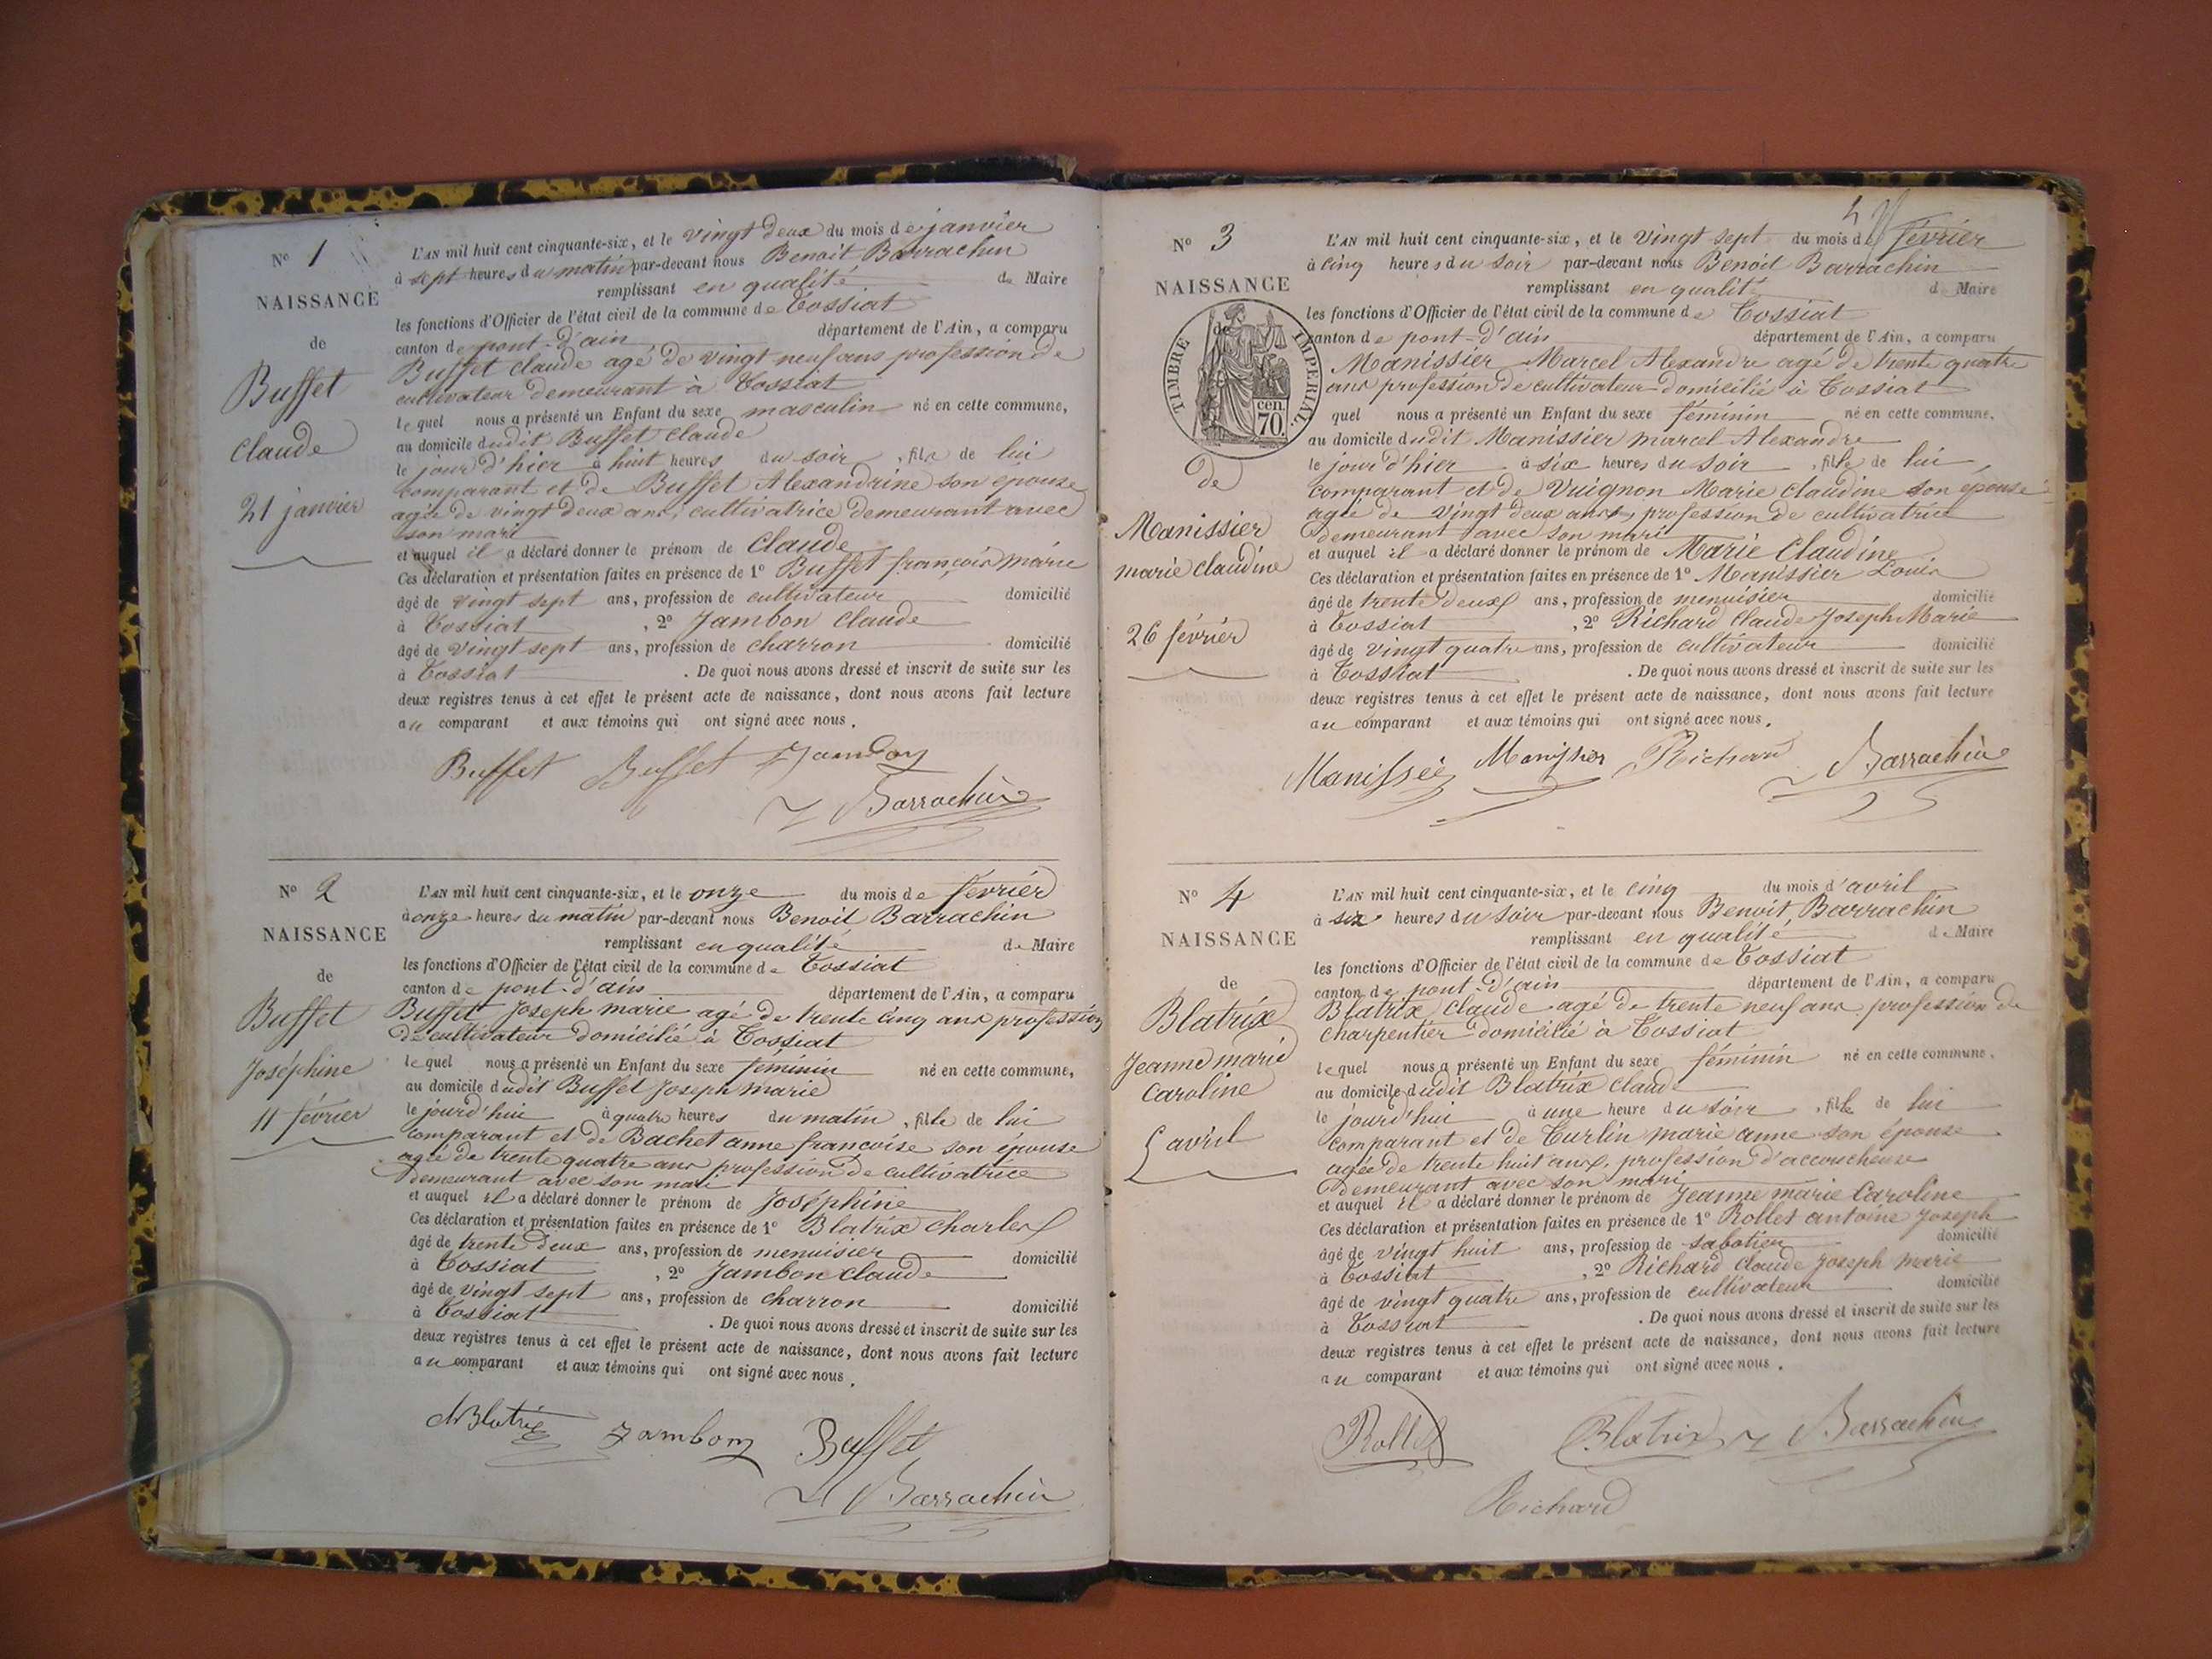 N° 1
NAISSANCE
de
Buffet
Claude
21 janvier
L'AN mil huit cent cinquante-six, et le vingt deux du mois de janvier
à sept heures du matin par-devant nous Benoit Barrachin
remplissant en qualité de Maire
les fonctions d'Officier de l'état civil de la commune de Tossiat
canton de pont-d'ain département de l'Ain, a comparu
Buffet claude agé de vingt neuf ans profession de
cultivateur demeurant à Tossiat
lequel nous a présenté un Enfant du sexe masculin né en cette commune,
au domicile dudit Buffet Claude
le jour d'hier à huit heures du soir, fils de lui
comparant et de Buffet Alexandrine son épouse
agée de vingt deux ans, cultivatrice demeurant avec
son mari
et auquel il a déclaré donner le prénom de Claude
Ces déclaration et présentation faites en présence de 1° Buffet françois marie
âgé de vingt sept ans, profession de cultivateur domicilié
à Tossiat, 2° Jambon Claude
âgé de vingt sept ans, profession de charron domicilié
à Tossiat. De quoi nous avons dressé et inscrit de suite sur les
deux registres tenus à cet effet le présent acte de naissance, dont nous avons fait lecture
au comparant et aux témoins qui ont signé avec nous.
Buffet Buffet Jambon
Barrachin
N° 2
NAISSANCE
de
Buffet
Joséphine
11 février
L'AN mil huit cent cinquante-six, et le onze du mois de février
à onze heures du matin par-devant nous Benoit Barrachin
remplissant en qualité de Maire
les fonctions d'Officier de l'état civil de la commune de Tossiat
canton de pont-d'ain département de l'Ain, a comparu
Buffet Joseph marie agé de trente cinq ans profession
de cultivateur domicilié à Tossiat
lequel nous a présenté un Enfant du sexe féminin né en cette commune,
au domicile dudit Buffet Joseph marie
le jourd'hui à quatre heures du matin, fille de lui
comparant et de Bachet anne françoise son épouse
agée de trente quatre ans profession de cultivatrice
demeurant avec son mari
et auquel il a déclaré donner le prénom de Joséphine
Ces déclaration et présentation faites en présence de 1° Blatrix Charles
âgé de trente deux ans, profession de menuisier domicilié
à Tossiat, 2° Jambon claude
âgé de vingt sept ans, profession de charron domicilié
à Tossiat. De quoi nous avons dressé et inscrit de suite sur les
deux registres tenus à cet effet le présent acte de naissance, dont nous avons fait lecture
au comparant et aux témoins qui ont signé avec nous.
Blatrix Jambon Buffet
Barrachin
N° 3
NAISSANCE
TIMBRE IMPÉRIAL
de
70 cen.
de
Manissier
marie claudine
26 février
L'AN mil huit cent cinquante-six, et le vingt sept du mois de février
à cinq heures du soir par-devant nous Benoit Barrachin
remplissant en qualité de Maire
les fonctions d'Officier de l'état civil de la commune de Tossiat
canton de pont-d'ain département de l'Ain, a comparu
Manissier Marcel Alexandre agé de trente quatre
ans profession de cultivateur domicilié à Tossiat
quel nous a présenté un Enfant du sexe féminin né en cette commune,
au domicile dudit Manissier marcel Alexandre
le jour d'hier à six heures du soir, fille de lui
comparant et de Vuignon Marie Claudine son épouse
agée de vingt deux ans, profession de cultivatrice
demeurant avec son mari
et auquel il a déclaré donner le prénom de Marie Claudine
Ces déclaration et présentation faites en présence de 1° Manissier Louis
âgé de trente deux ans, profession de menuisier domicilié
à Tossiat, 2° Richard Claude Joseph Marie
âgé de vingt quatre ans, profession de cultivateur domicilié
à Tossiat. De quoi nous avons dressé et inscrit de suite sur les
deux registres tenus à cet effet le présent acte de naissance, dont nous avons fait lecture
au comparant et aux témoins qui ont signé avec nous.
Manissier Manissier Richard Barrachin
N° 4
NAISSANCE
de
Blatrix
Jeanne marie
Caroline
5 avril
L'AN mil huit cent cinquante-six, et le cinq du mois d'avril
à six heures du soir par-devant nous Benoit Barrachin
remplissant en qualité de Maire
les fonctions d'Officier de l'état civil de la commune de Tossiat
canton de pont-d'ain département de l'Ain, a comparu
Blatrix Claude agé de trente neuf ans profession de
charpentier domicilié à Tossiat
lequel nous a présenté un Enfant du sexe féminin né en cette commune,
au domicile dudit Blatrix claude
le jourd'hui à une heure du soir, fille de lui
comparant et de Turlin marie anne son épouse
agée de trente huit ans, profession d'accoucheuse
demeurant avec son mari
et auquel il a déclaré donner le prénom de Jeanne marie Caroline
Ces déclaration et présentation faites en présence de 1° Rollet antoine Joseph
âgé de vingt huit ans, profession de sabotier domicilié
à Tossiat, 2° Richard Claude Joseph marie
âgé de vingt quatre ans, profession de cultivateur domicilié
à Tossiat. De quoi nous avons dressé et inscrit de suite sur les
deux registres tenus à cet effet le présent acte de naissance, dont nous avons fait lecture
au comparant et aux témoins qui ont signé avec nous.
Rollet Blatrix Barrachin
Richard